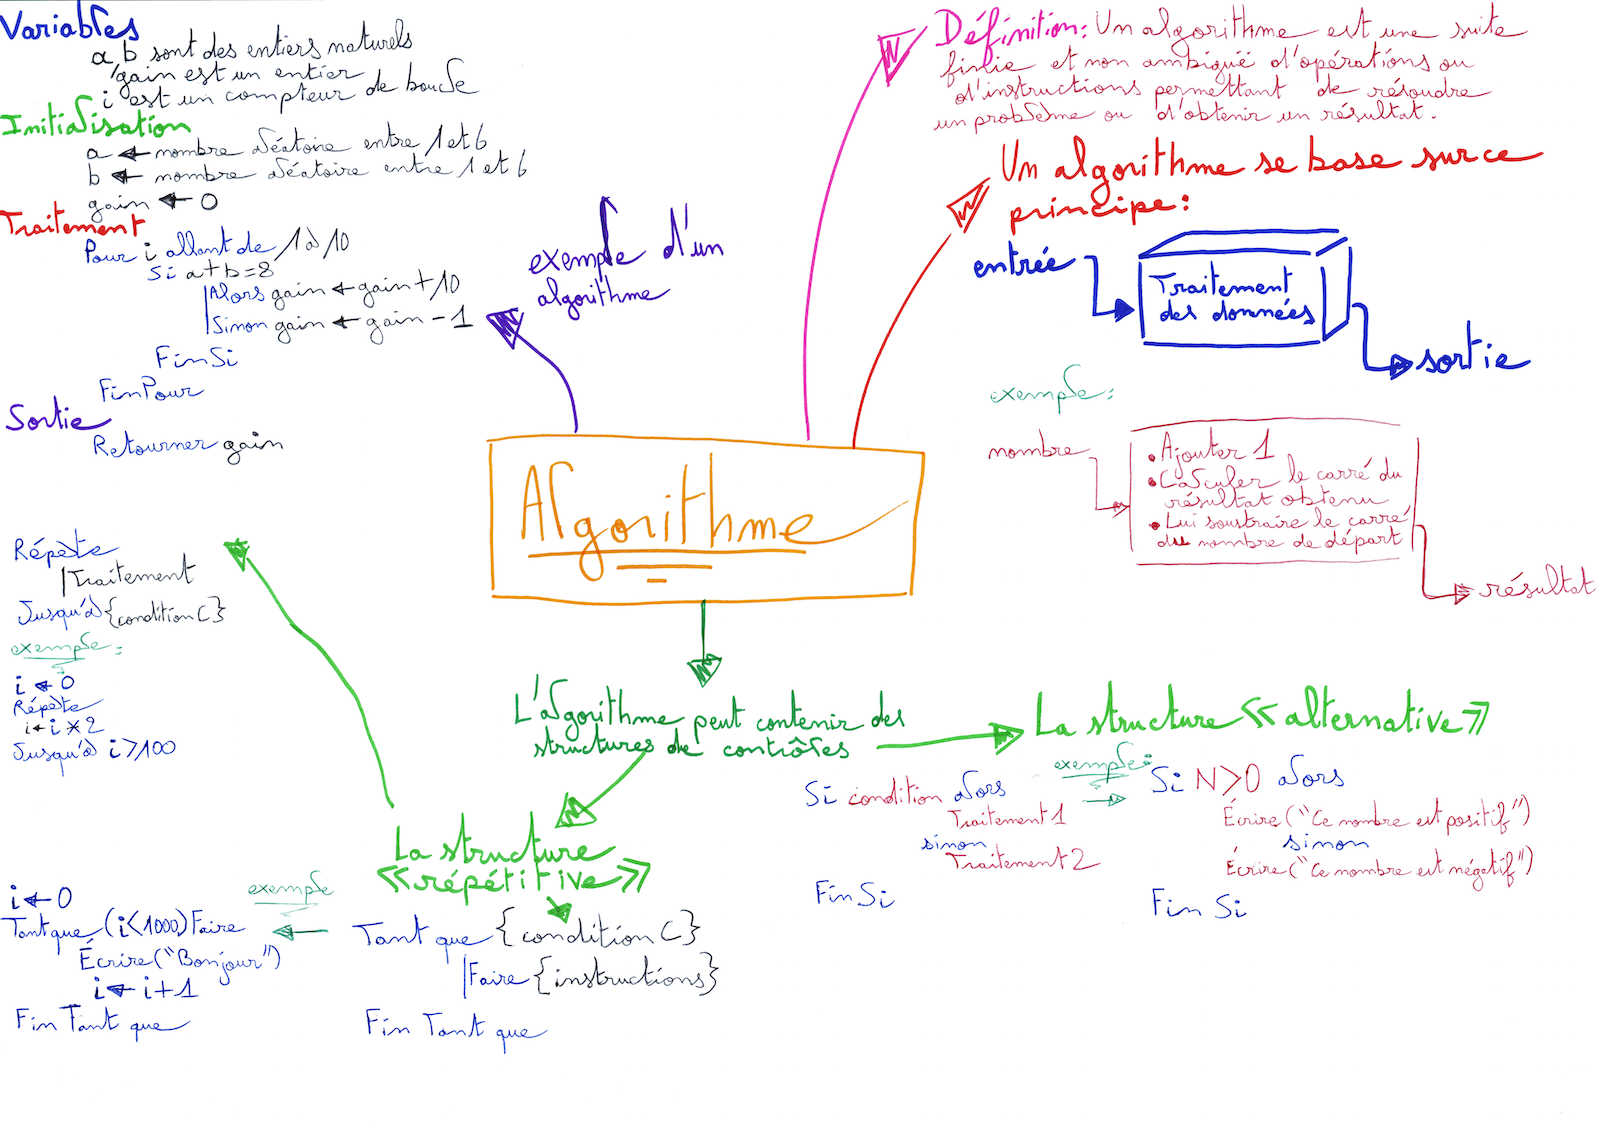 Variables
a b sont des entiers naturels
gain est un entier
i est un compteur de boucle
Initialisation
a ← nombre aléatoire entre 1 et 6
b ← nombre aléatoire entre 1 et 6
gain ← 0
Traitement
Pour i allant de 1 à 10
Si a+b=8
Alors gain ← gain + 10
Sinon gain ← gain - 1
Fin Si
Fin Pour
Sortie
Retourner gain
exemple d'un
algorithme
Définition: Un algorithme est une suite
finie et non ambiguë d'opérations ou
d'instructions permettant de résoudre
un problème ou d'obtenir un résultat.
Un algorithme se base sur ce
principe:
entrée
Traitement
des données
sortie
exemple:
nombre
• Ajouter 1
• Calculer le carré du
résultat obtenu
• Lui soustraire le carré
du nombre de départ
résultat
Algorithme
Répète
Traitement
Jusqu'à {condition C}
exemple:
i ← 0
Répète
i ← i * 2
Jusqu'à i > 100
L'algorithme peut contenir des
structures de contrôles
La structure « alternative »
Si condition alors
Traitement 1
sinon
Traitement 2
Fin Si
exemple:
Si N>0 alors
Écrire ("Ce nombre est positif")
sinon
Écrire ("Ce nombre est négatif")
Fin Si
La structure
« répétitive »
Tant que {condition C}
Faire {instructions}
Fin Tant que
exemple
i ← 0
Tant que (i<1000) Faire
Écrire ("Bonjour")
i ← i+1
Fin Tant que